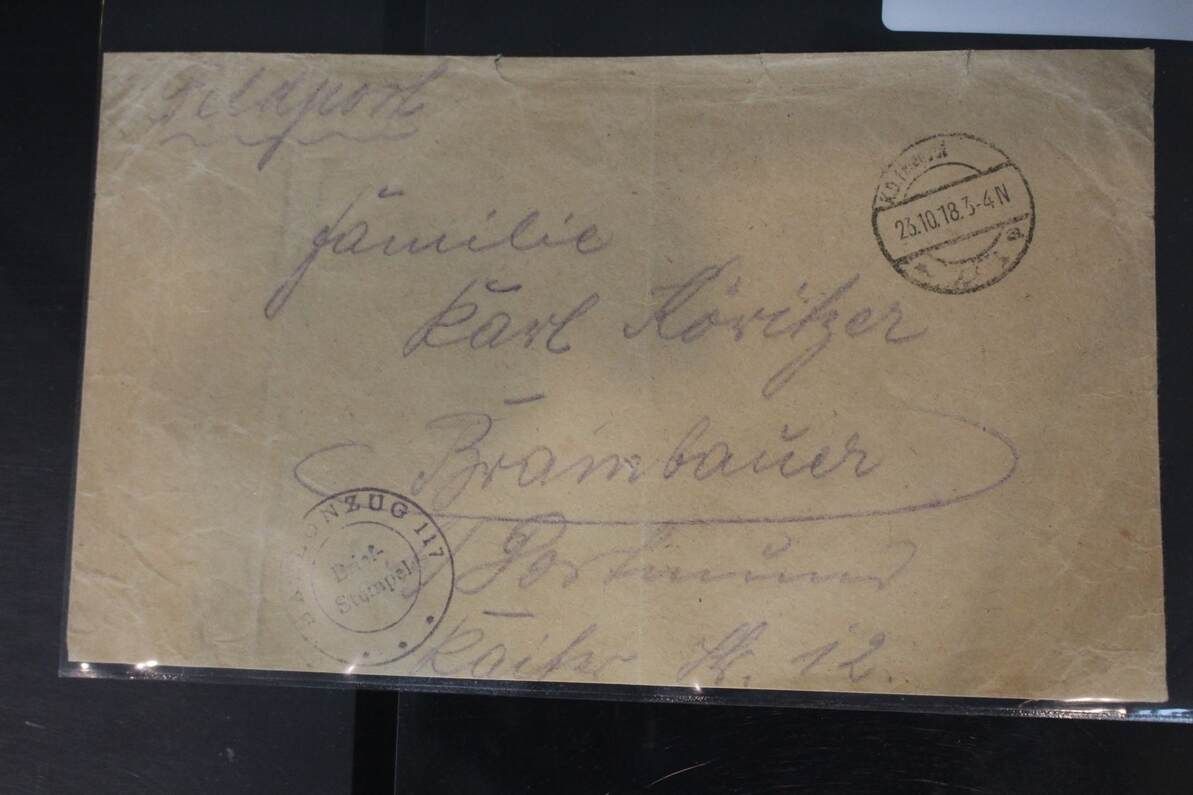 Feldpost
23.10.18.3-4N
Familie
Karl Köritzer
Brambauer
BALLONZUG 117
Brief-
Stempel
b/ Dortmund
Kaiser Str. 12.